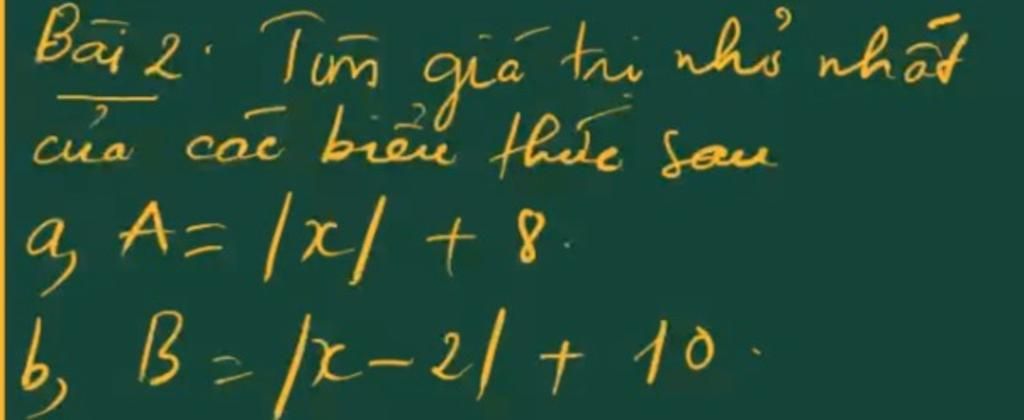 Bài 2. Tìm giá trị nhỏ nhất
của các biểu thức sau
a, A = |x| + 8.
b, B = |x - 2| + 10.